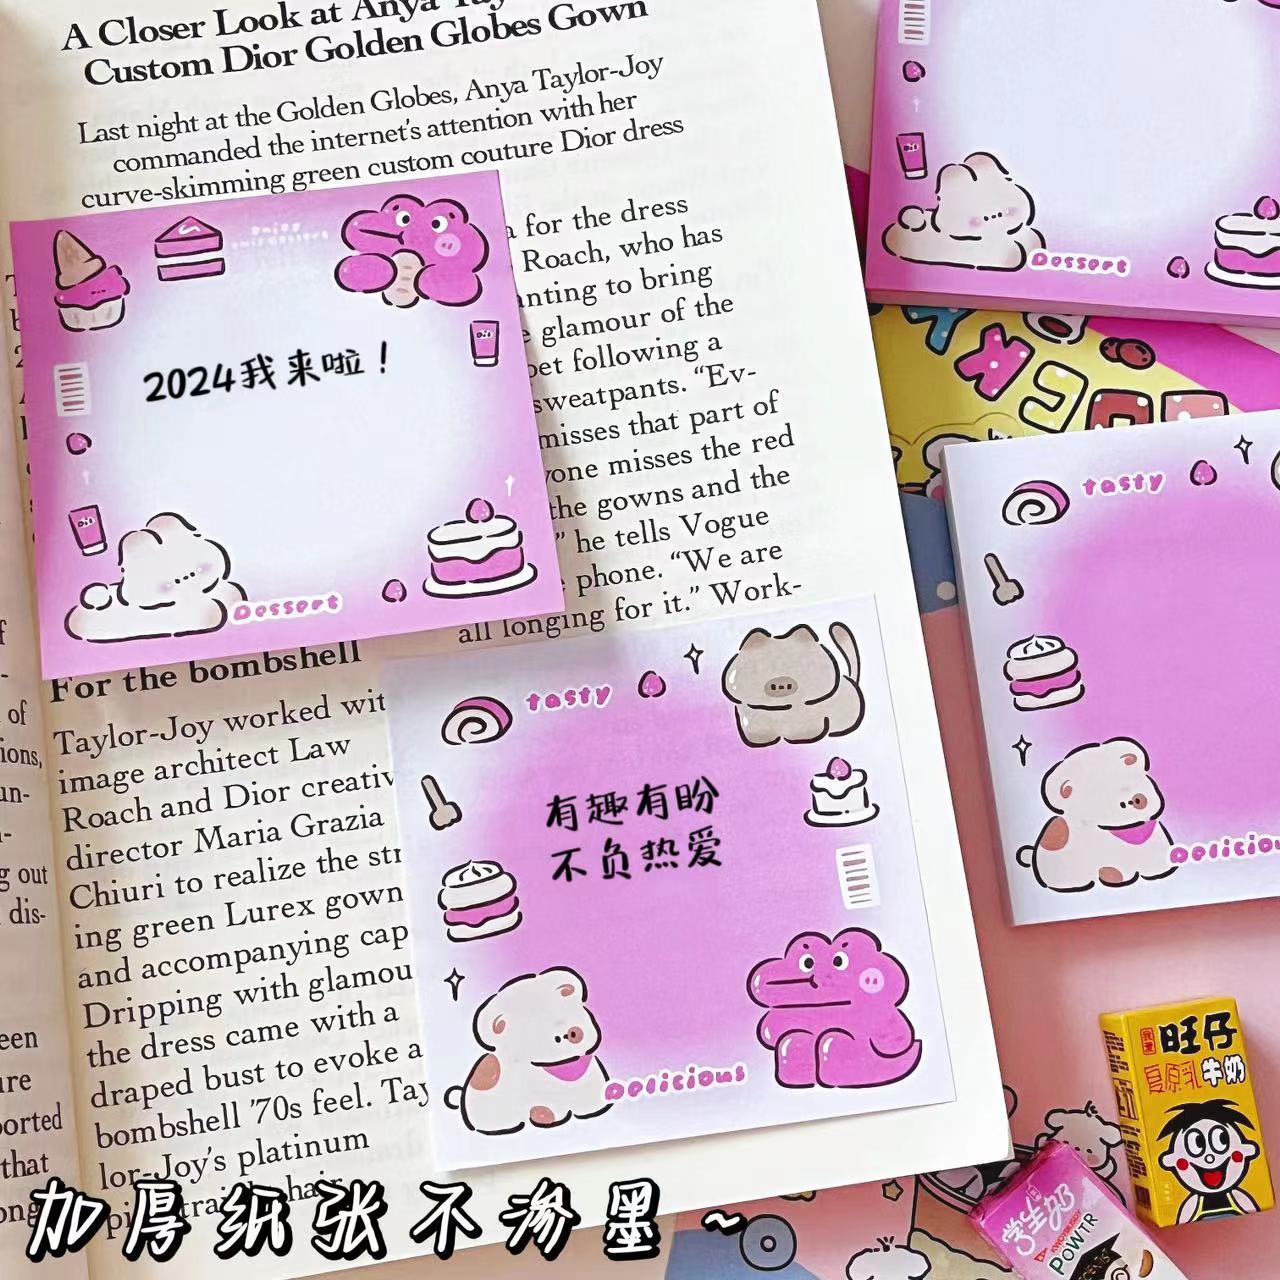 A Closer Look at Anya
Custom Dior Golden Globes Gown
Last night at the Golden Globes, Anya Taylor-Joy
commanded the internet's attention with her
curve-skimming green custom couture Dior dress
for the dress
Roach, who has
to bring
glamour of the
following a
sweatpants. “Ev-
misses that part of
one misses the red
the gowns and the
” he tells Vogue
phone. “We are
all longing for it.” Work-
2024我来啦！
Dessert
For the bombshell
Taylor-Joy worked
image architect Law
Roach and Dior
director Maria Grazia
Chiuri to realize the
ing green Lurex gown
and accompanying
Dripping with
the dress came with a
draped bust to evoke a
bombshell ’70s feel. Tay
lor-Joy’s platinum
hair
tasty
有趣有盼
不负热爱
Delicious
Dessert
tasty
Delicious
of
out
dis-
that
旺仔
复原乳牛奶
学生奶
POWTR
加厚纸张不渗墨~